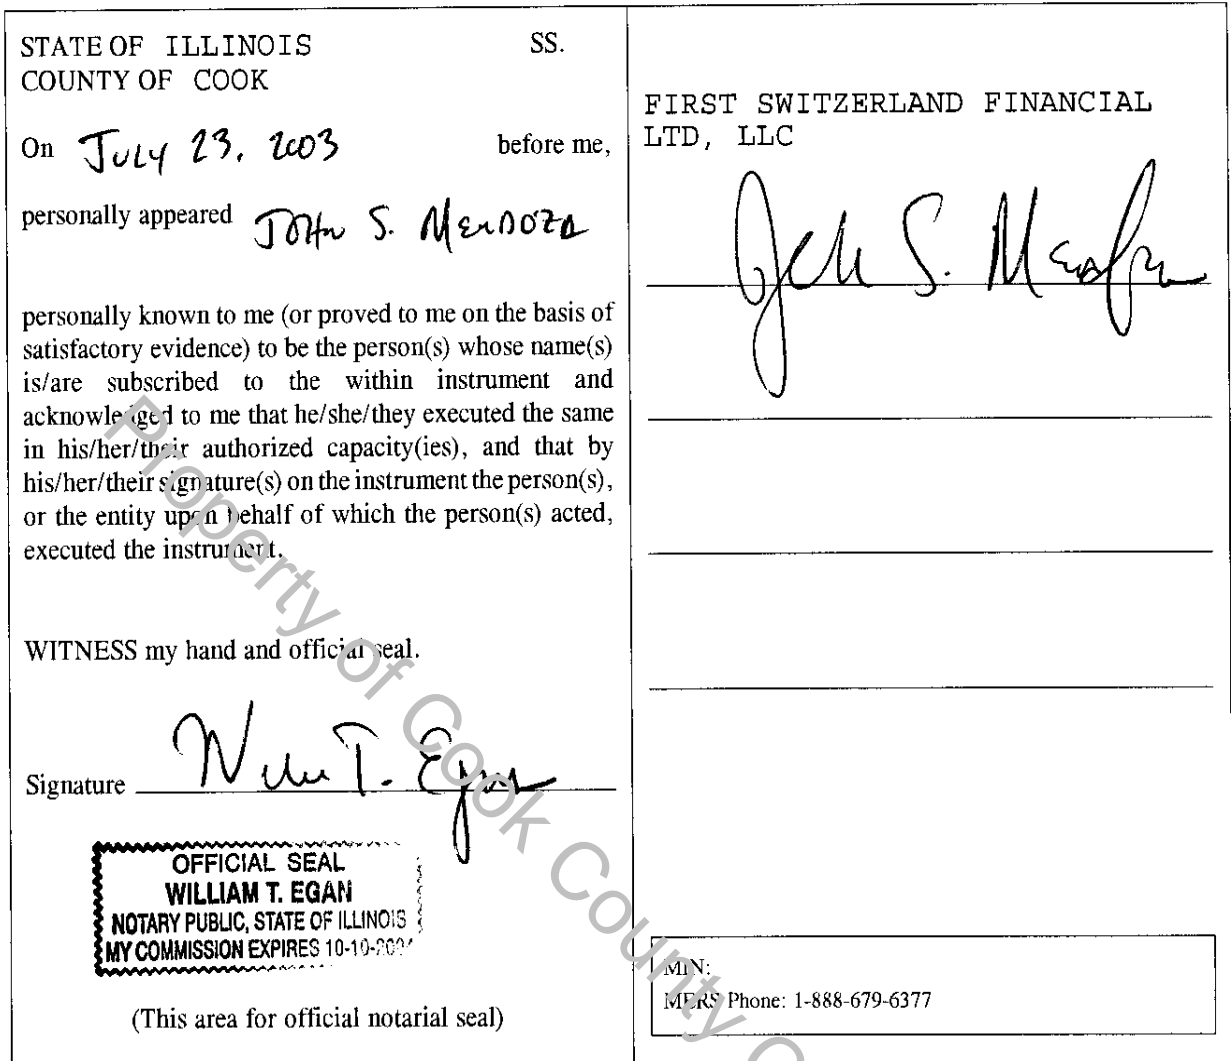 STATE OF ILLINOIS SS.
COUNTY OF COOK
On July 23, 2003 before me,
personally appeared John S. Mendoza
personally known to me (or proved to me on the basis of
satisfactory evidence) to be the person(s) whose name(s)
is/are subscribed to the within instrument and
acknowledged to me that he/she/they executed the same
in his/her/their authorized capacity(ies), and that by
his/her/their signature(s) on the instrument the person(s),
or the entity upon behalf of which the person(s) acted,
executed the instrument.
WITNESS my hand and official seal.
Signature William T. Egan
OFFICIAL SEAL
WILLIAM T. EGAN
NOTARY PUBLIC, STATE OF ILLINOIS
MY COMMISSION EXPIRES 10-10-2004
(This area for official notarial seal)
FIRST SWITZERLAND FINANCIAL
LTD, LLC
John S. Mendoza
MIN:
MERS Phone: 1-888-679-6377
Property of Cook County